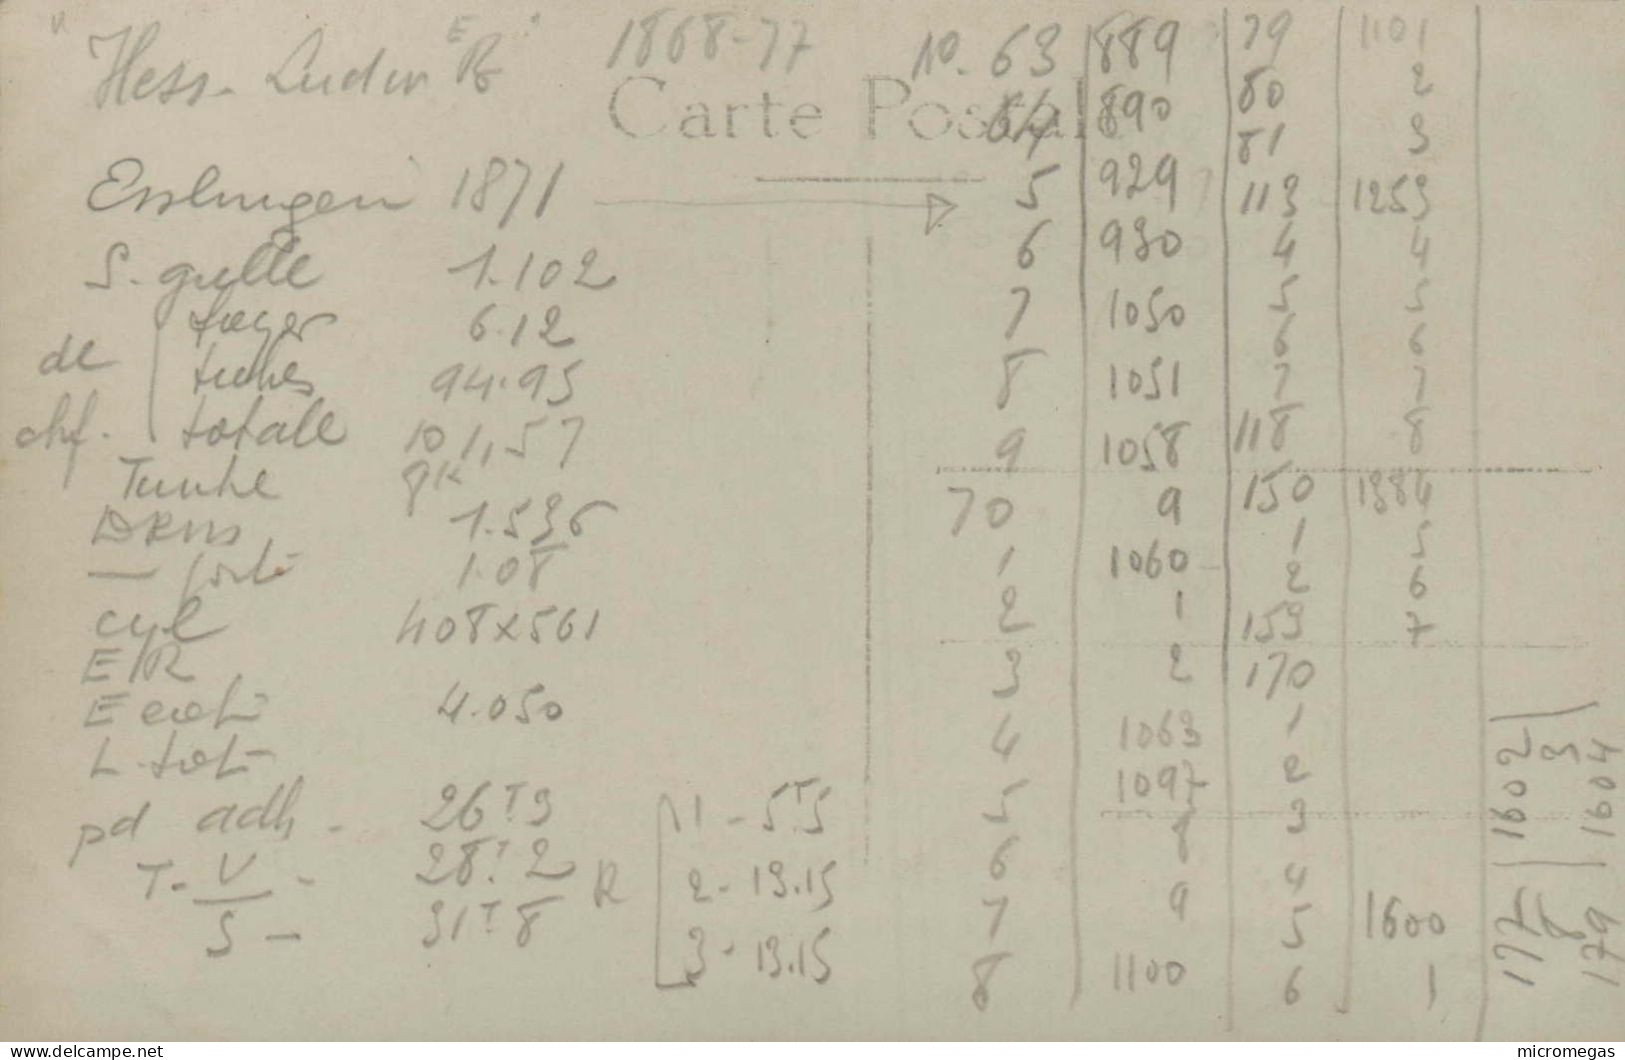 "Hess. Ludw EB" 1868-77
Carte Postale
Esslingen 1871
S. grille 1.102
de chf.
foyer 6.12
tubes 94.95
totale 101,57
Timbre 9K
DRms 1.536
— port 1.08
cyl 408x561
ER
E ext 4.050
L. tot
pd adh - 26T3
T - V - 28T.2
S - 31T8
R
1 - 5T5
2 - 13.15
3 - 13.15
no. 63 889 79 1101
64 890 80 2
5 929 81 3
6 930 113 1253
7 1050 4 4
8 1051 5 5
9 1058 6 6
70 9 7 7
1 1060 118 8
2 1 150 1384
3 2 1 5
4 1063 2 6
5 1097 153 7
6 8 170
7 9 1
8 1100 2
3
4
5 1600
6 1
177 1602
8 3
179 1604
delcampe.net
micromegas